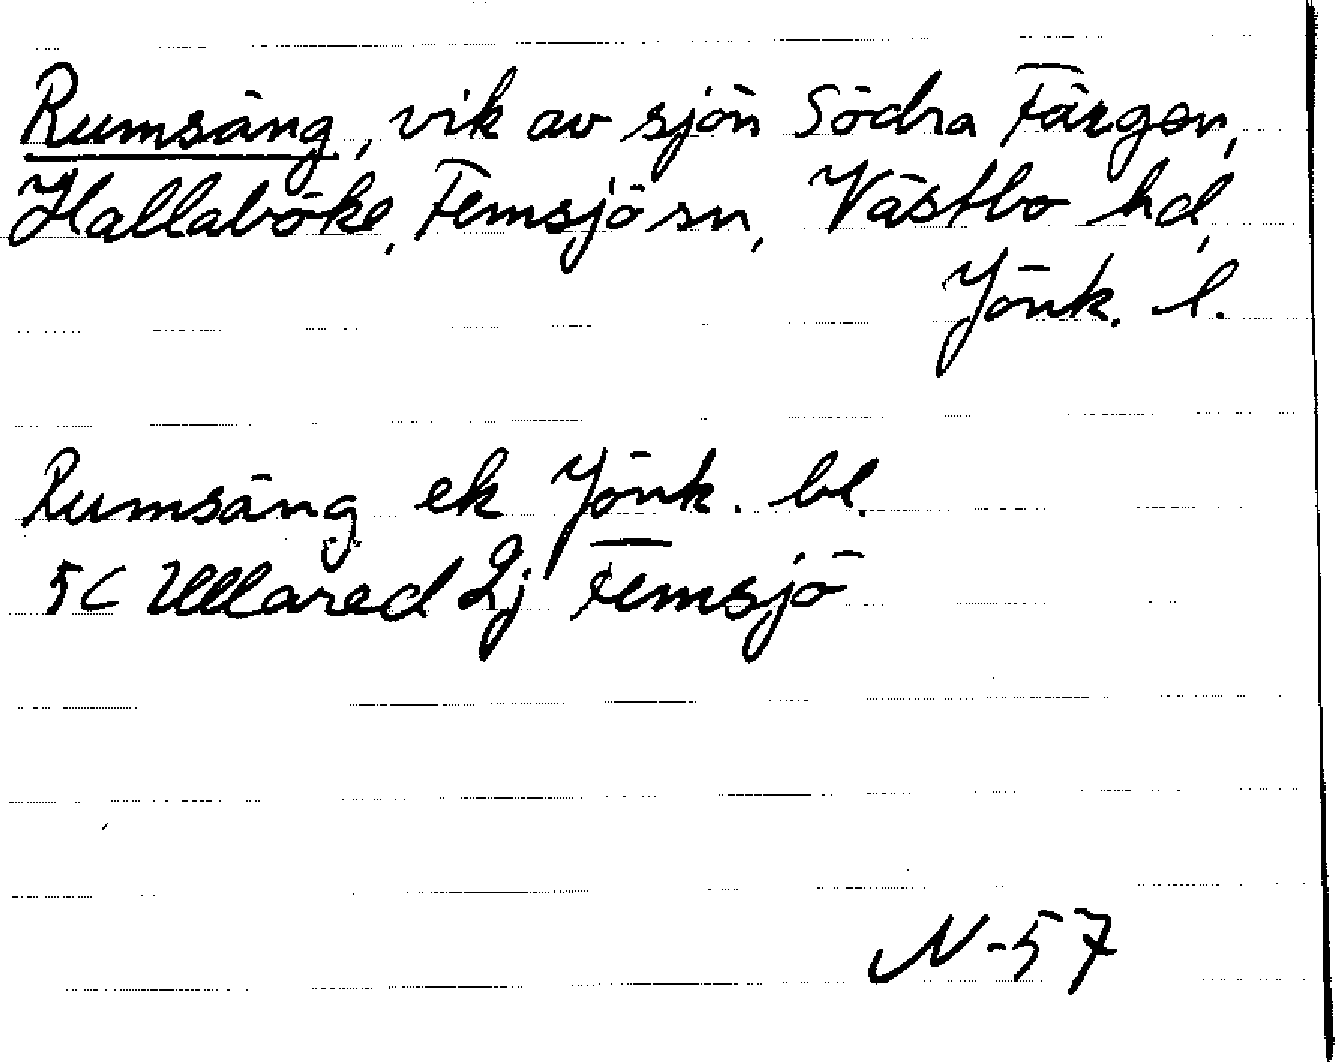 Rumsäng, vik av sjön Södra Färgen,
Hallaböke, Femsjö sn, Västbo hd,
Jönk. l.
Rumsäng ek Jönk. bl.
5C Ullared 2j Femsjö
N-57